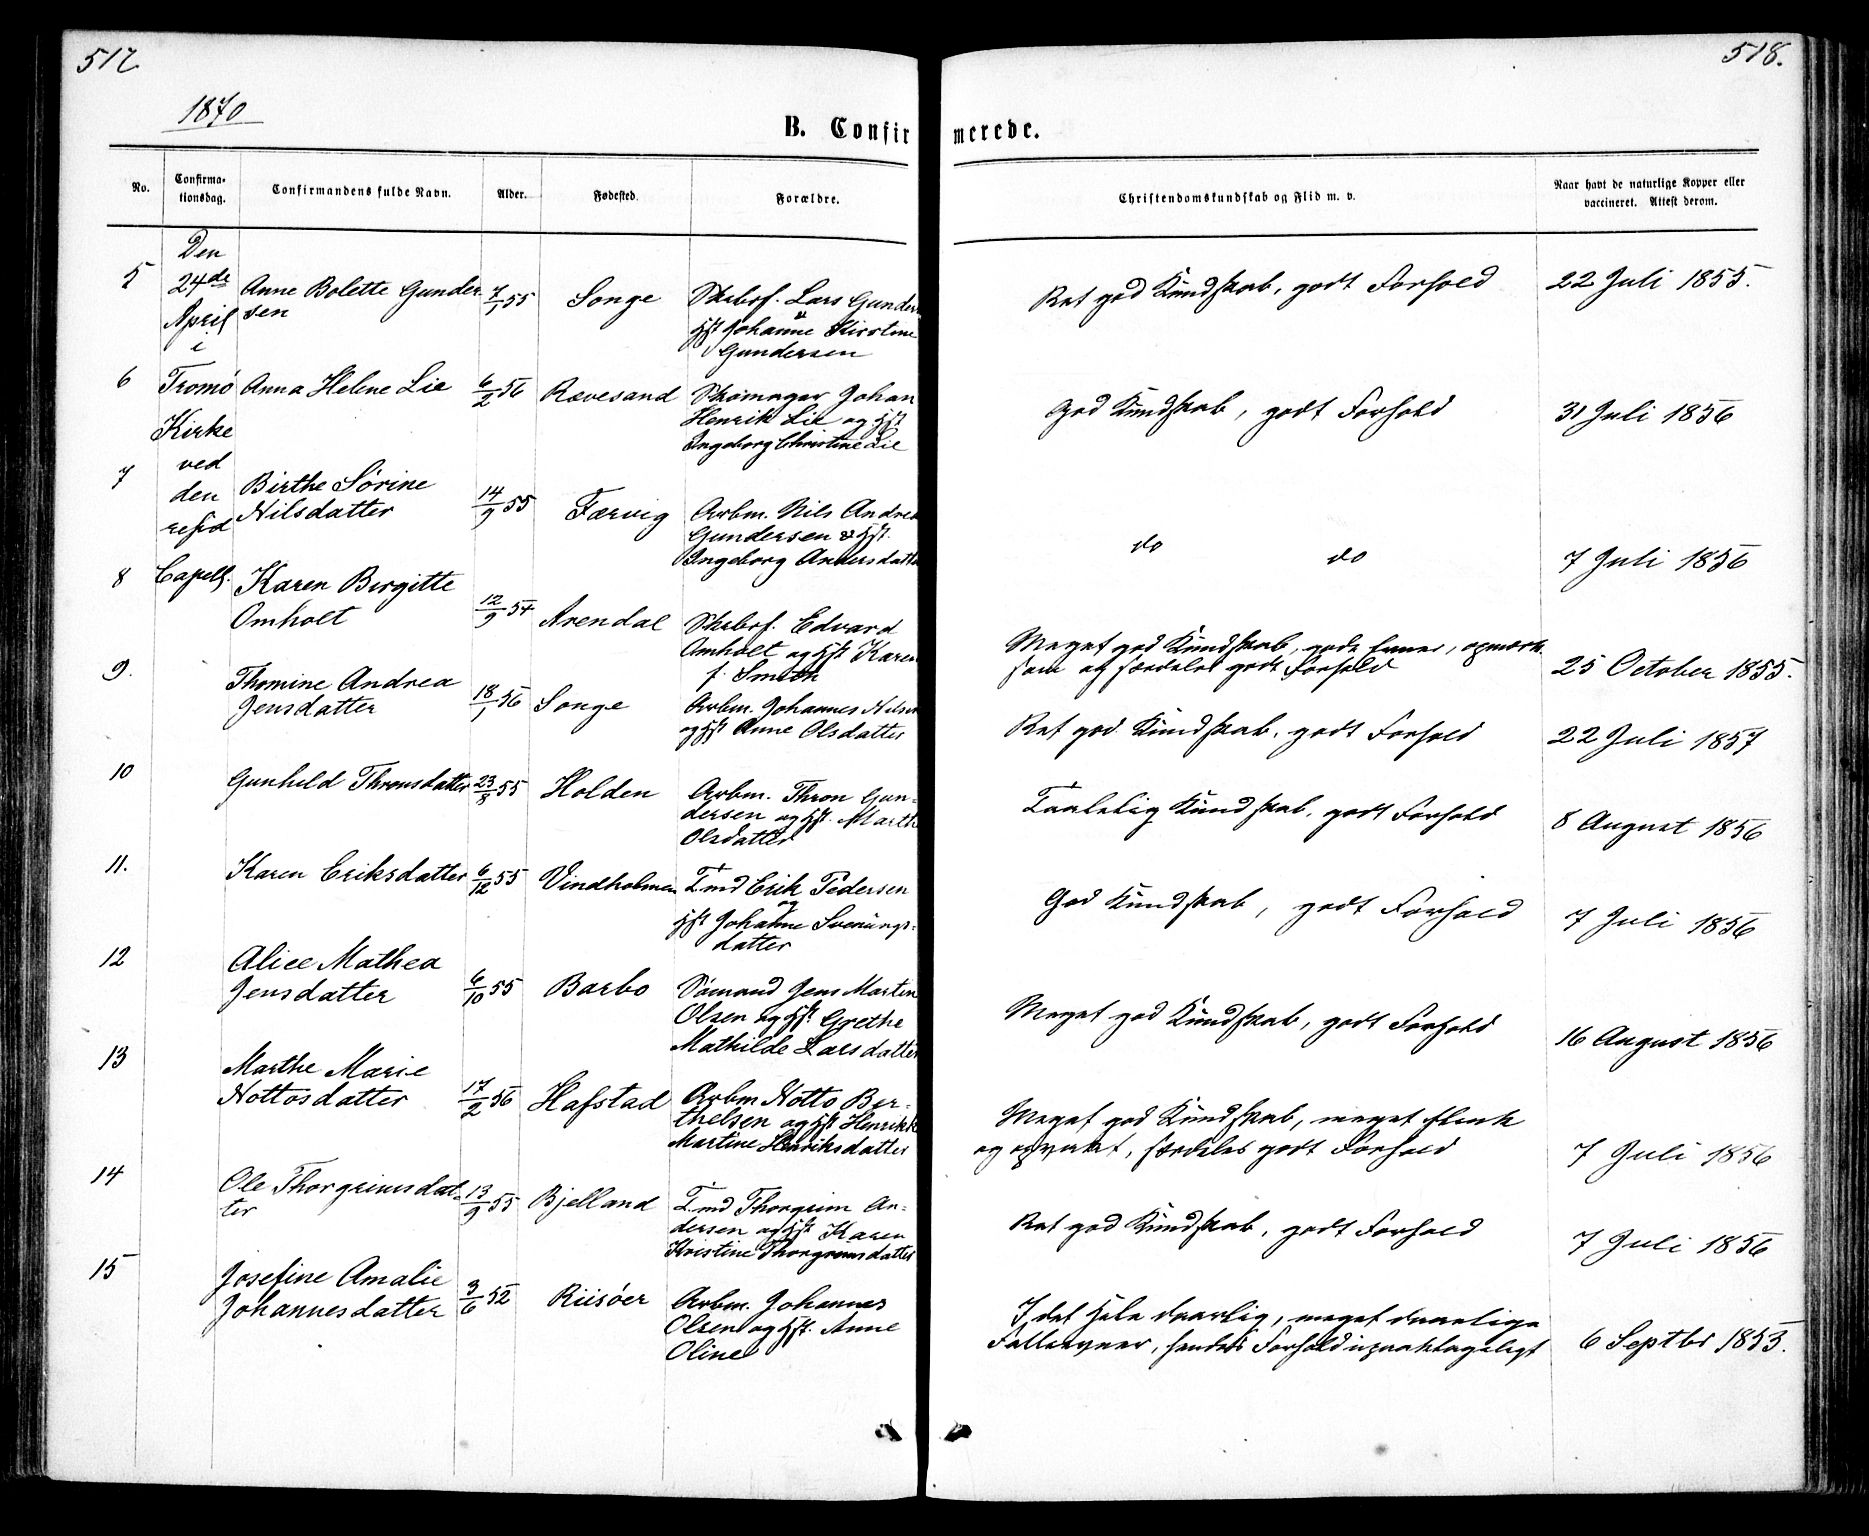 517
518.
1870
B. Confirmerede.
No.
Confirmationsdag.
Confirmandens fulde Navn.
Alder.
Fødested.
Forældre.
Christendomskundskab og Flid m. v.
Naar havt de naturlige Kopper eller
vaccineret. Attest derom.
Den
24de
April
i
Tromö
Kirke
ved
den
resid
Capell.
5
Anne Bolette Gunder
sen
7/1 55
Songe
Skibsf. Lars Gunders
&
Hst Johanne Kirstine
Gundersen
Ret god Kundskab, godt Forhold
22 Juli 1855.
6
Anna Helene Lie
6/2 56
Rævesand
Skomager Johan
Henrik Lie og Hst
Ingeborg Christine Lie
God Kundskab, godt Forhold
31 Juli 1856
7
Birthe Sørine
Nilsdatter
14/9 55
Færvig
Arbm. Nils Andrea
Gundersen & Hst.
Ingeborg Andersdatte
do do
7 Juli 1856
8
Karen Birgitte
Omholt
12/9 54
Arendal
Skibsf. Edvard
Omholt og Hst Karen
f. Smith
Meget god Kundskab, gode Evner, opmærk
som og særdeles godt Forhold
25 October 1855.
9.
Thomine Andrea
Jensdatter
18/1 56
Songe
Arbm. Johannes Nilsen
og Hst Anne Olsdatter
Ret god Kundskab, godt Forhold
22 Juli 1857
10
Gunhild Thronsdatter
23/8 55
Holden
Arbm. Thron Gun-
dersen og Hst. Marth
Olsdatter
Taalelig Kundskab, godt Forhold
8 August 1856
11.
Karen Eriksdatter
6/12 55
Vindholmen
T.md Erik Pedersen
og
Hst Johanne Svenungs-
datter
God Kundskab, godt Forhold
7 Juli 1856
12
Alice Mathea
Jensdatter
6/10 55
Barbo
Sømand Jens Martin
Olsen og Hst. Grethe
Mathilde Larsdatter
Meget god Kundskab, godt Forhold
16 August 1856
13
Marthe Marie
Nottosdatter
17/2 56
Hafstad
Arbm Notto Ber-
thelsen og Hst Henrikk
Martine Henriksdatter
Meget god Kundskab, meget flink
og opvakt, særdeles godt Forhold
7 Juli 1856
14
Ole Thorgrimsdat-
ter
13/9 55
Bjelland
T.md Thorgrim An-
dersen og Hst Karen
Kristine Thorgrimsdatter
Ret god Kundskab, godt Forhold
7 Juli 1856
15
Josefine Amalie
Johannesdatter
3/6 52
Riisöer
Arbm. Johannes
Olsen og Hst. Anne
Oline
I det Hele daarlig, meget daarlige
Fatteevner, hendes Forhold upaaklageligt
6 Septbr 1853.